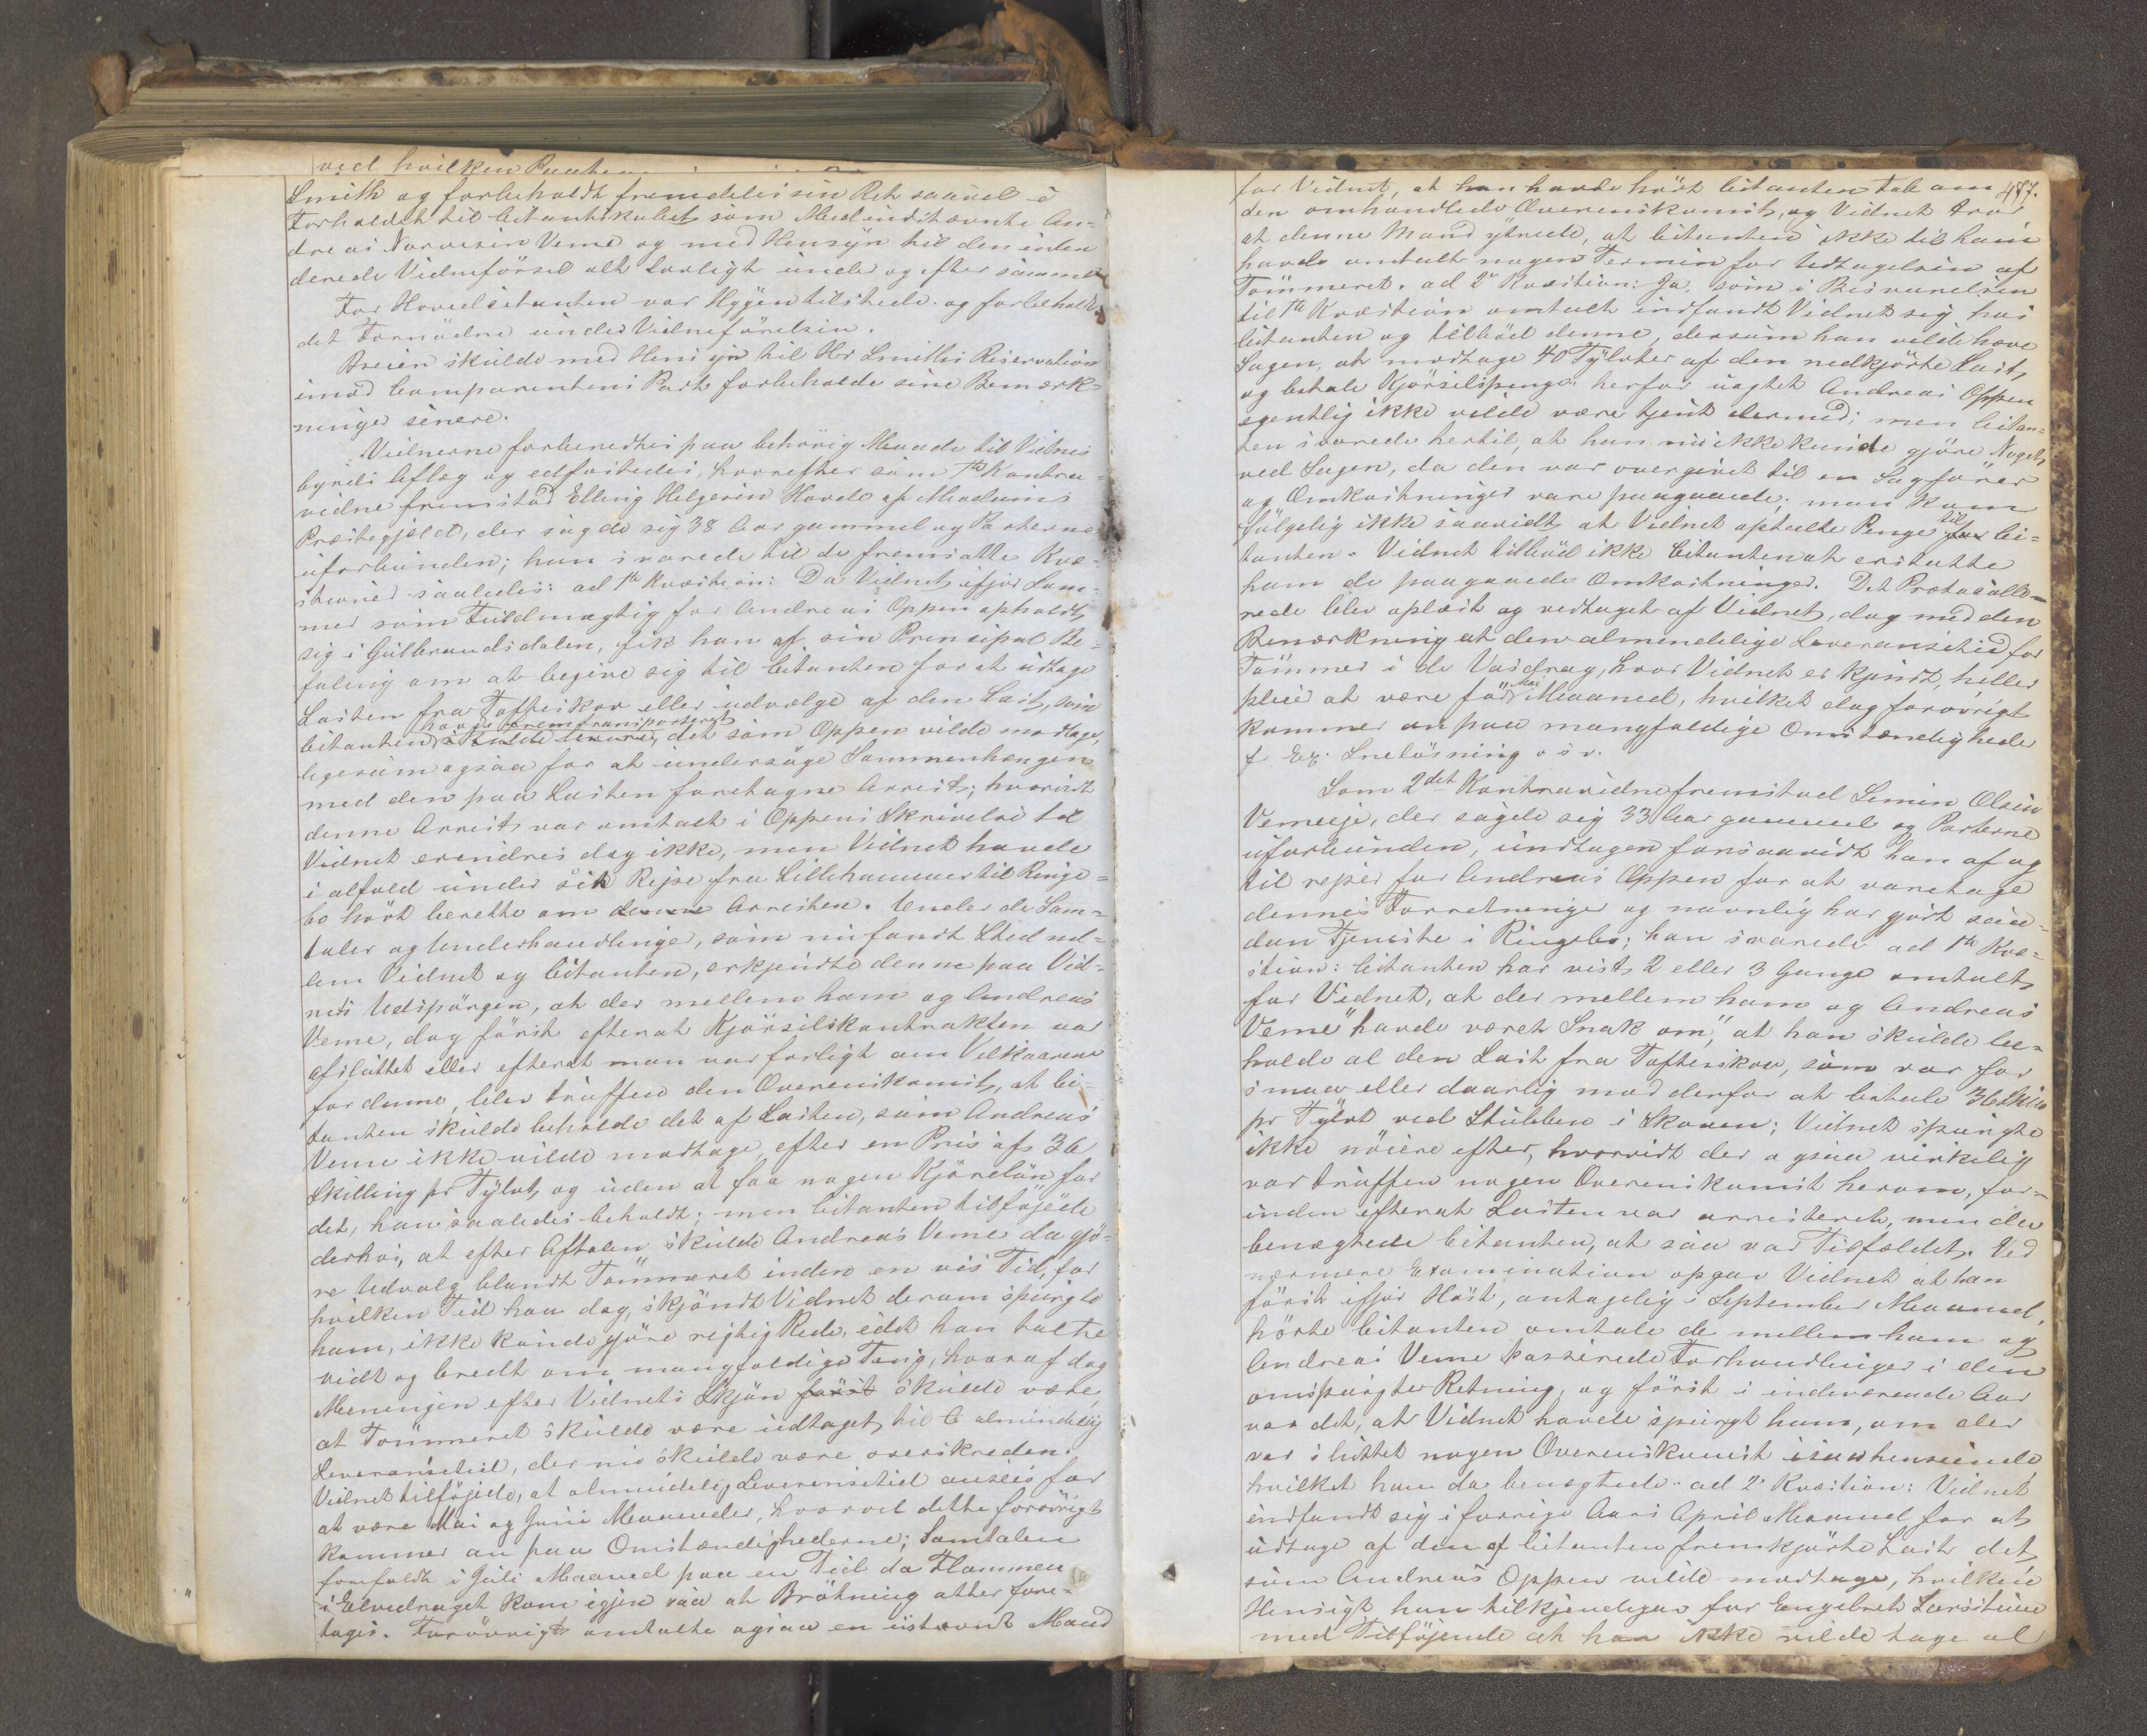 ved hvilken
Smith og forbeholdt fremdeles sin Ret saavel i
Forholdet til Citantskabet som Medindstævnte An-
dreas Narvesen Veme og med Hensyn til den inten
derede Vidneförsel alt lovligt under og efter samme
For Hovedcitanten var Hygen tilstede og forbeholdt
det Fornödne under Vidneförelsen.
Breien skulde med Hensyn til Hr Smiths Reservation
imod Comparentens Part forbeholde sine Bemærk-
ninger senere.
Vidnerne forberedtes paa behörig Maade til Vidnes
byrds Aflæg og edfæstedes, hvorefter som 1te Kontra-
vidne fremstod Elling Helgesen Hovde af Modums
Præstegjeld, der sagde sig 38 Aar gammel og Parterne
uforbunden; han svarede til de fremsatte Kvæ-
stioner saaledes: ad 1te Kvæstion: Da Vidnet ifjor Som-
mer som Fuldmægtig for Andreas Oppen opholdt
sig i Gulbrandsdalen, fik han af sin Prinsipal Be-
faling om at begive sig til Citanten for at udtage
Lasten fra Tofteskov eller udvælge af den Last, som
havde fremtransporteret
Citanten skulde levere, det som Oppen vilde modtage,
ligesom ogsaa for at undersöge Sammenhængen
med den paa Lasten foretagne Arrest; hvorvidt
denne Arrest var omtalt i Oppens Skrivelse til
Vidnet erindres dog ikke, men Vidnet havde
i alfald under sin Rejse fra Lillehammer til Ringe-
bo hört berette om denne Arresten. Under de Sam-
taler og Underhandlinger, som nu fandt Sted mel-
lem Vidnet og Citanten, erkjendte denne paa Vid-
nets Udspörgen, at der mellem ham og Andreas
Veme, dog först efterat Kjörselskontrakten var
afsluttet eller efterat man var forligt om Vilkaarene
for denne, blev truffen den Overenskomst, at Ci-
tanten skulde beholde det af Lasten, som Andreas
Veme ikke vilde modtage, efter en Pris af 36
Skilling pr Tylvt, og uden at faa nogen Kjörelön for
det, han saaledes beholdt; men Citanten tilföjede
derhos, at efter Aftalen skulde Andreas Veme da gjö-
re Udvalg blandt Tömmeret inden en vis Tid, for
hvilken Tid han dog, skjöndt Vidnet derom spurgte
ham, ikke kunde gjöre rigtig Rede, idet han talte
vidt og bredt om mangfoldige Ting, hvoraf dog
Meningen efter Vidnets Skjön först skulde være,
at Tömmeret skulde være udtaget til almindelig
Leveransetid, der nu skulde være overskreden.
Vidnet tilföjede, at almindelig Leveransetid ansees for
at være Mai og Juni Maaneder, hvorvel dette forövrigt
kommer an paa Omstændighederne; Samtalen
forefaldt i Juli Maaned paa en Tid da Flommen
i Elvedraget kom igjen saa at Brötning atter fore-
toges. Forövrigt omtalte ogsaa en ustævnt Mand
487.
for Vidnet, at han havde hört Citanten tale om
den omhandlede Overenskomst, og Vidnet tror
at denne Mand ytrede, at Citanten ikke til ham
havde omtalt nogen Termin for Udtagelsen af
Tömmeret. ad 2n Kvæstion: Ja, som i Besvarelsen
til 1te Kvæstion omtalt indfandt Vidnet sig hos
Citanten og tilböd denne, dersom han vilde hæve
Sagen, at modtage 40 Tylvter af den nedkjörte Last,
og betale Kjörselspenge herfor uagtet Andreas Oppen
egentlig ikke vilde være tjent dermed; men Citan-
ten svarede hertil, at han nu ikke kunde gjöre Noget
ved Sagen, da den var overgivet til en Sagförer
og Omkostninger vare paagaaede; man kom
til
fölgelig ikke saavidt at Vidnet optalte Penge for Ci-
tanten. Vidnet tilböd ikke Citanten at erstatte
ham de paagaaede Omkostninger. Det Protocolle-
rede blev oplæst og vedtaget af Vidnet, dog med den
Bemærkning at den almindelige Leveransetid for
Tömmer i de Vasdrag, hvor Vidnet er kjendt, heller
Mai
pleier at være för Maaned, hvilket dog forövrigt
kommer an paa mangfoldige Omstændigheder
f Ex. Snelösning osv.
Som 2det Kontravidne fremstod Simen Olsen
Vemeeje, der sagde sig 33 Aar gammel og Parterne
uforbunden, undtagen forsaavidt han af og
til rejser for Andreas Oppen for at varetage
dennes Forretninger og navnlig har gjort saa-
dan Tjeneste i Ringebo; han svarede ad 1te Kvæ-
stion: Citanten har vist 2 eller 3 Gange omtalt
for Vidnet, at der mellem ham og Andreas
Veme "havde været Snak om", at han skulde be-
holde al den Last fra Tofteskov, som var for
smaa eller daarlig mod derfor at betale 36 Skill
pr Tylvt ved Stubben i Skoven; Vidnet spurgte
ikke nöiere efter, hvorvidt der ogsaa virkelig
var truffen nogen Overenskomst herom, for-
inden efterat Lasten var arresteret, men da
benægtede Citanten, at saa var Tilfældet. Ved
nærmere Examination opgav Vidnet at han
först ifjor Höst, antagelig i September Maaned,
hörte Citanten omtale de mellem ham og
Andreas Veme passerede Forhandlinger i den
omspurgte Retning, og först i indeværende Aar
var det, at Vidnet havde spurgt ham, om der
var sluttet nogen Overenskomst i saa henseende,
hvilket han da benægtede. ad 2. Kvæstion: Vidnet
indfandt sig i forrige Aar i April Maaned for at
udtage af den af Citanten fremkjörte Last det,
som Andreas Oppen vilde modtage, hvilken
Hensigt han tilkjendegav for Engebret Larsstuen
med Tilföjende at han ikke vilde tage al